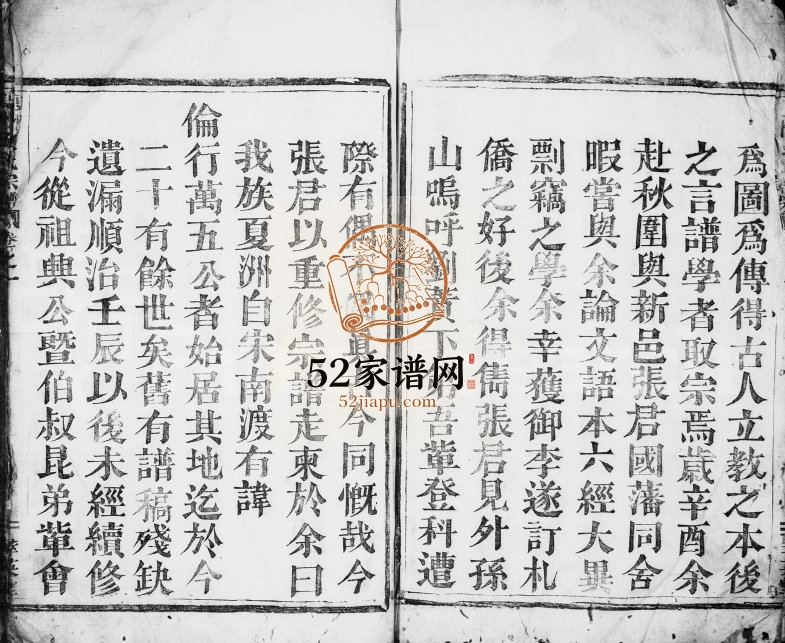 為圖為傳得古人立教之本後
之言譜學者取宗焉歲辛酉余
赴秋圍與新邑張君國藩同舍
暇嘗與余論文語本六經大異
剽竊之學余幸獲御李遂訂札
僑之好後余得雋張君見外孫
山嗚呼劉蕡下第吾輩登科遭
際有偶不偶真古今同慨哉今
張君以重修宗譜走柬於余曰
我族夏洲自宋南渡有諱
倫行萬五公者始居其地迄於今
二十有餘世矣舊有譜稿殘缺
遺漏順治壬辰以後未經續修
今從祖典公暨伯叔昆弟輩會
52家谱网
52jiapu.com